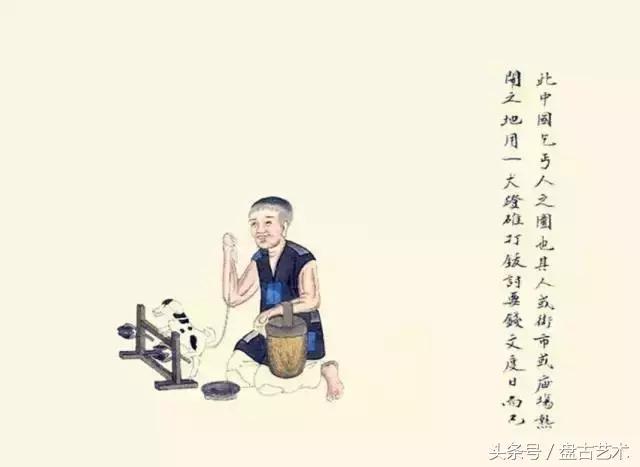 此中國乞丐人之圖也其人或街市或庙塲熱
閙之地用一犬蹬碓打鈸討要錢文度日而已
头条号／盘古艺术